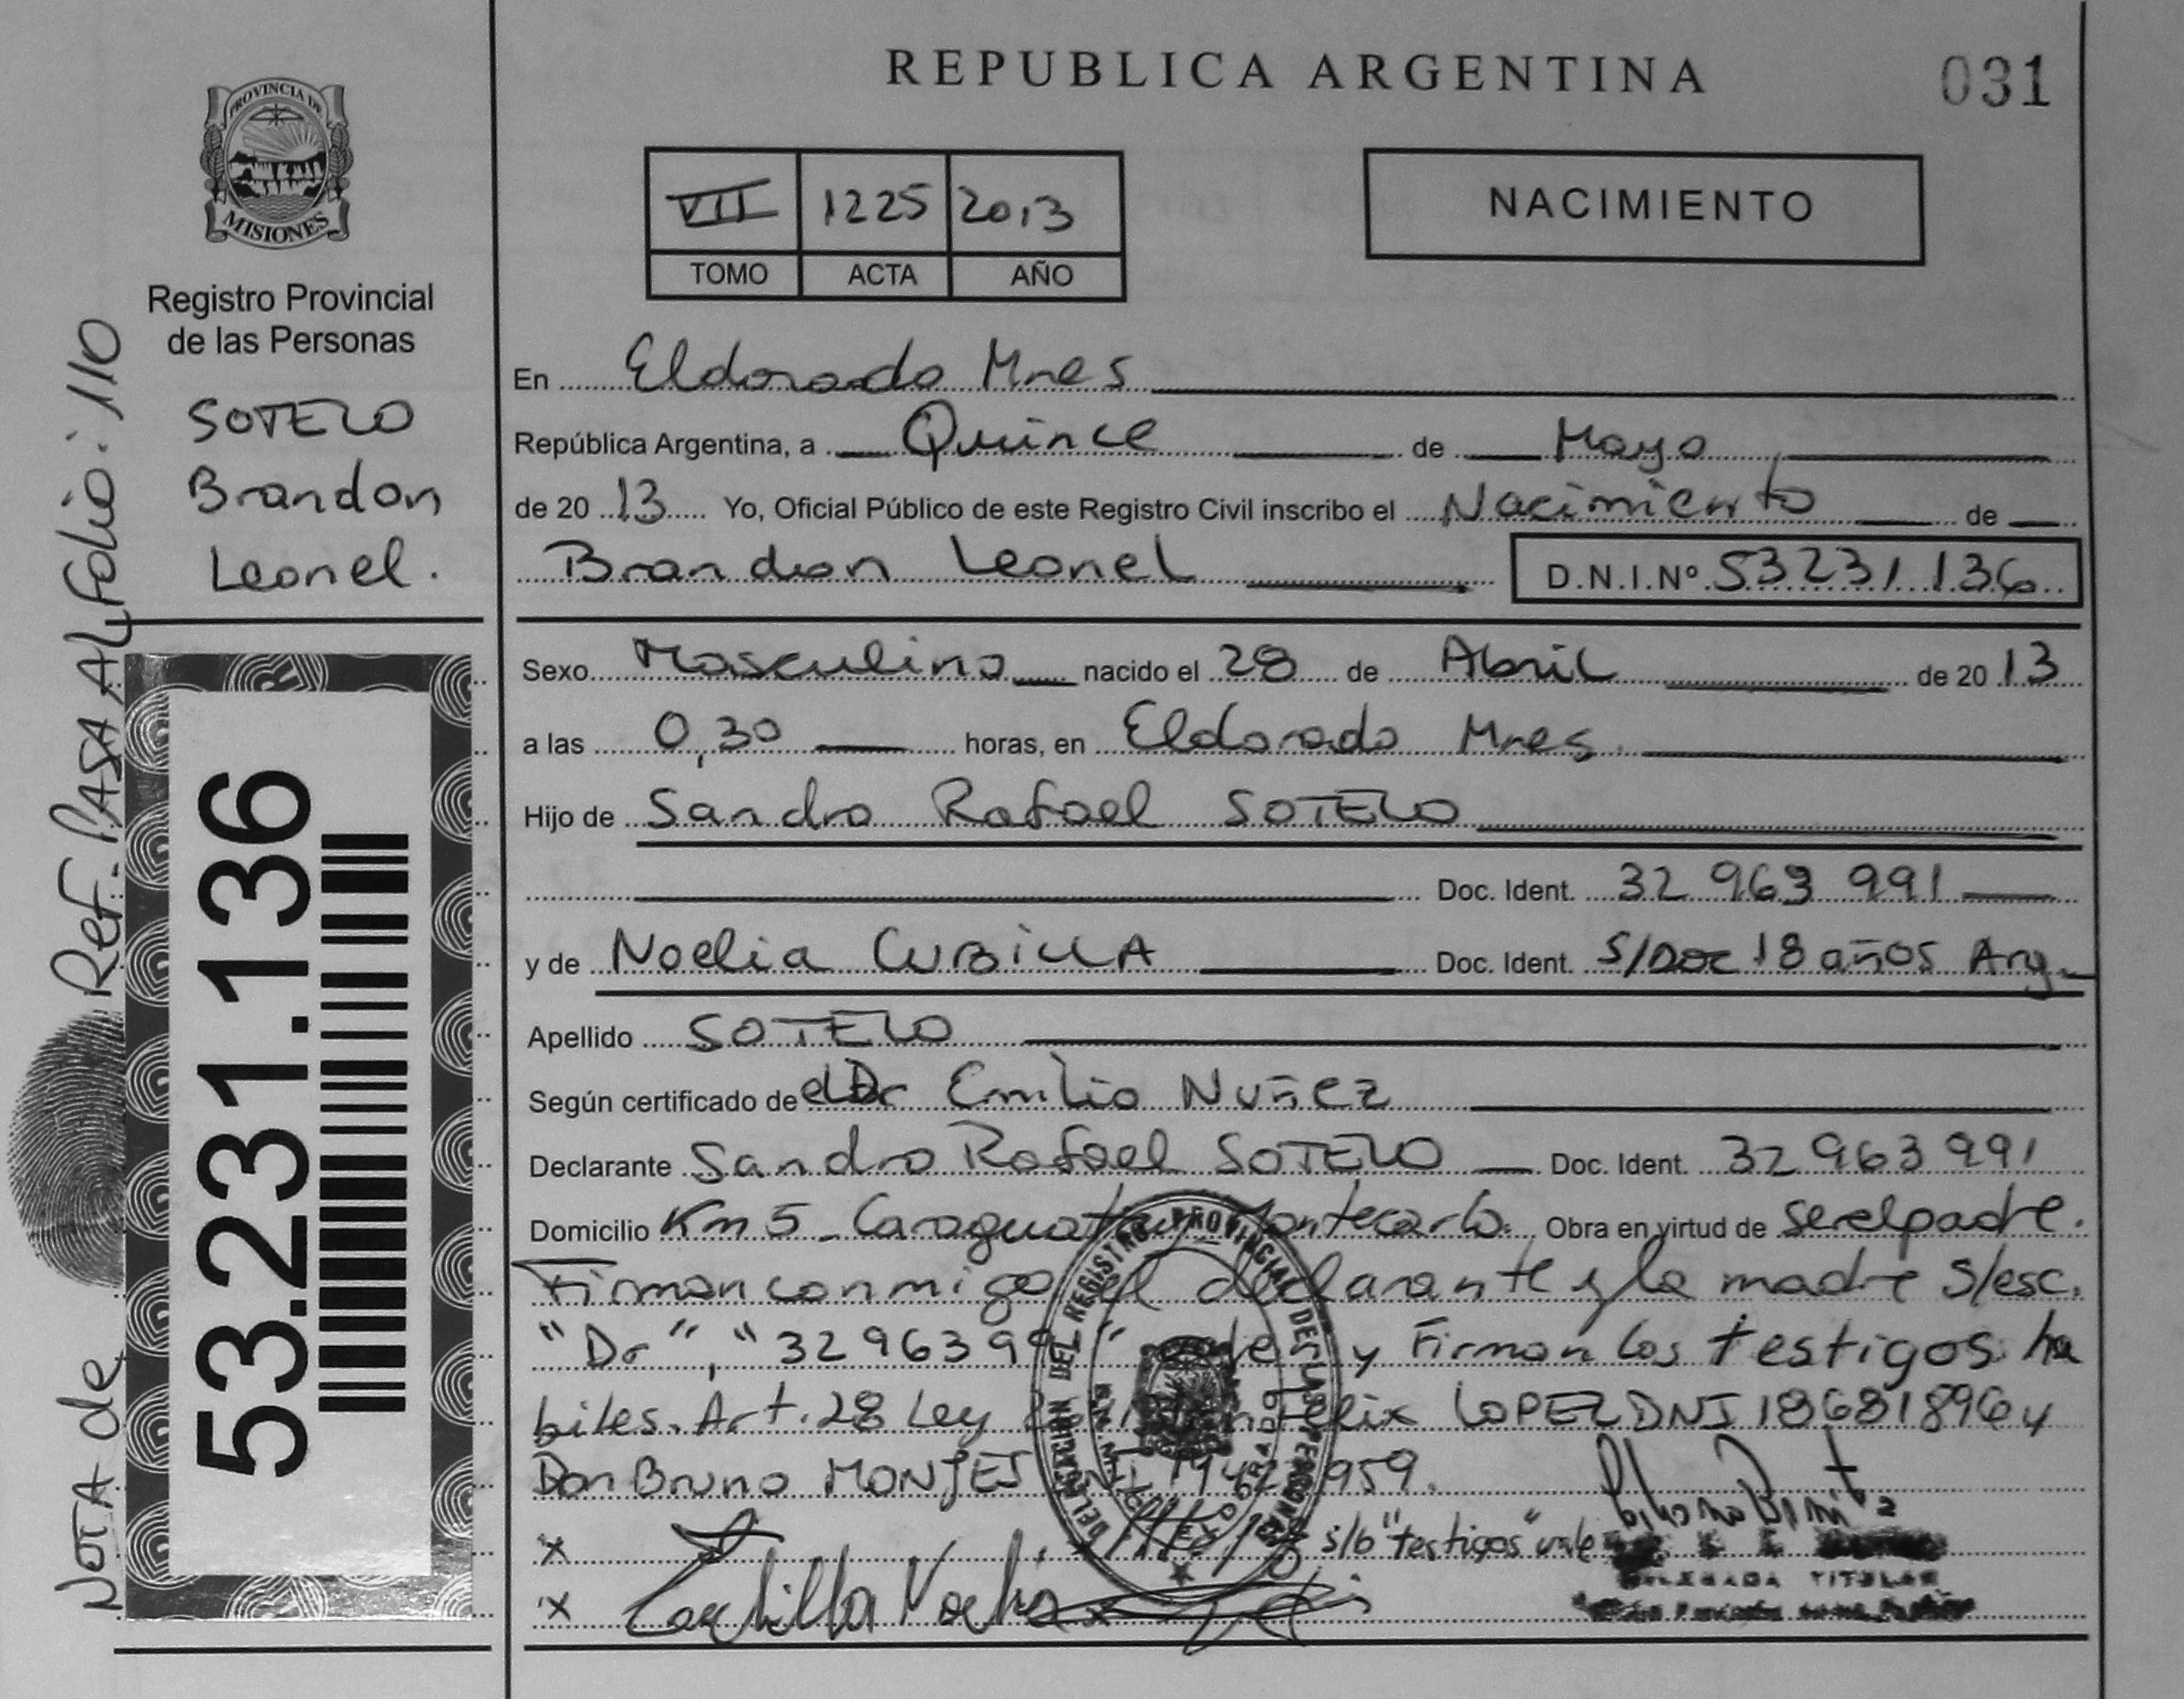 REPUBLICA ARGENTINA
031
PROVINCIA DE
MISIONES
Registro Provincial
de las Personas
SOTELO
Brandon
Leonel.
Nota de Ref. PASA AL Folio: 110
53.231.136
VII 1225 2013
TOMO ACTA AÑO
NACIMIENTO
En Eldorado Mnes
República Argentina, a Quince de Mayo
de 20 13 Yo, Oficial Público de este Registro Civil inscribo el Nacimiento de
Brandon Leonel D.N.I.Nº 53231136
Sexo Masculino nacido el 28 de Abril de 20 13
a las 0,30 horas, en Eldorado Mnes
Hijo de Sandro Rafael SOTELO
Doc. Ident. 32 963 991
y de Noelia CUBILLA Doc. Ident. S/Doc 18 años Arg.
Apellido SOTELO
Según certificado de el Dr Emilio Nuñez
Declarante Sandro Rafael SOTELO Doc. Ident. 32 963 991
Domicilio Km 5 - Caraguatay Montecarlo. Obra en virtud de ser el padre.
Firman conmigo el declarante y la madre S/esc.
"Dr", "3296399 " y Firman los testigos ha
biles. Art. 28 Ley Felix LOPEZ DNI 18681896 y
Don Bruno MONJES 959.
x s/b "testigos" vale
x Cubilla Noelia
DELEGACION DEL REGISTRO PROVINCIAL DE LAS PERSONAS
ELDORADO
DELEGADA TITULAR